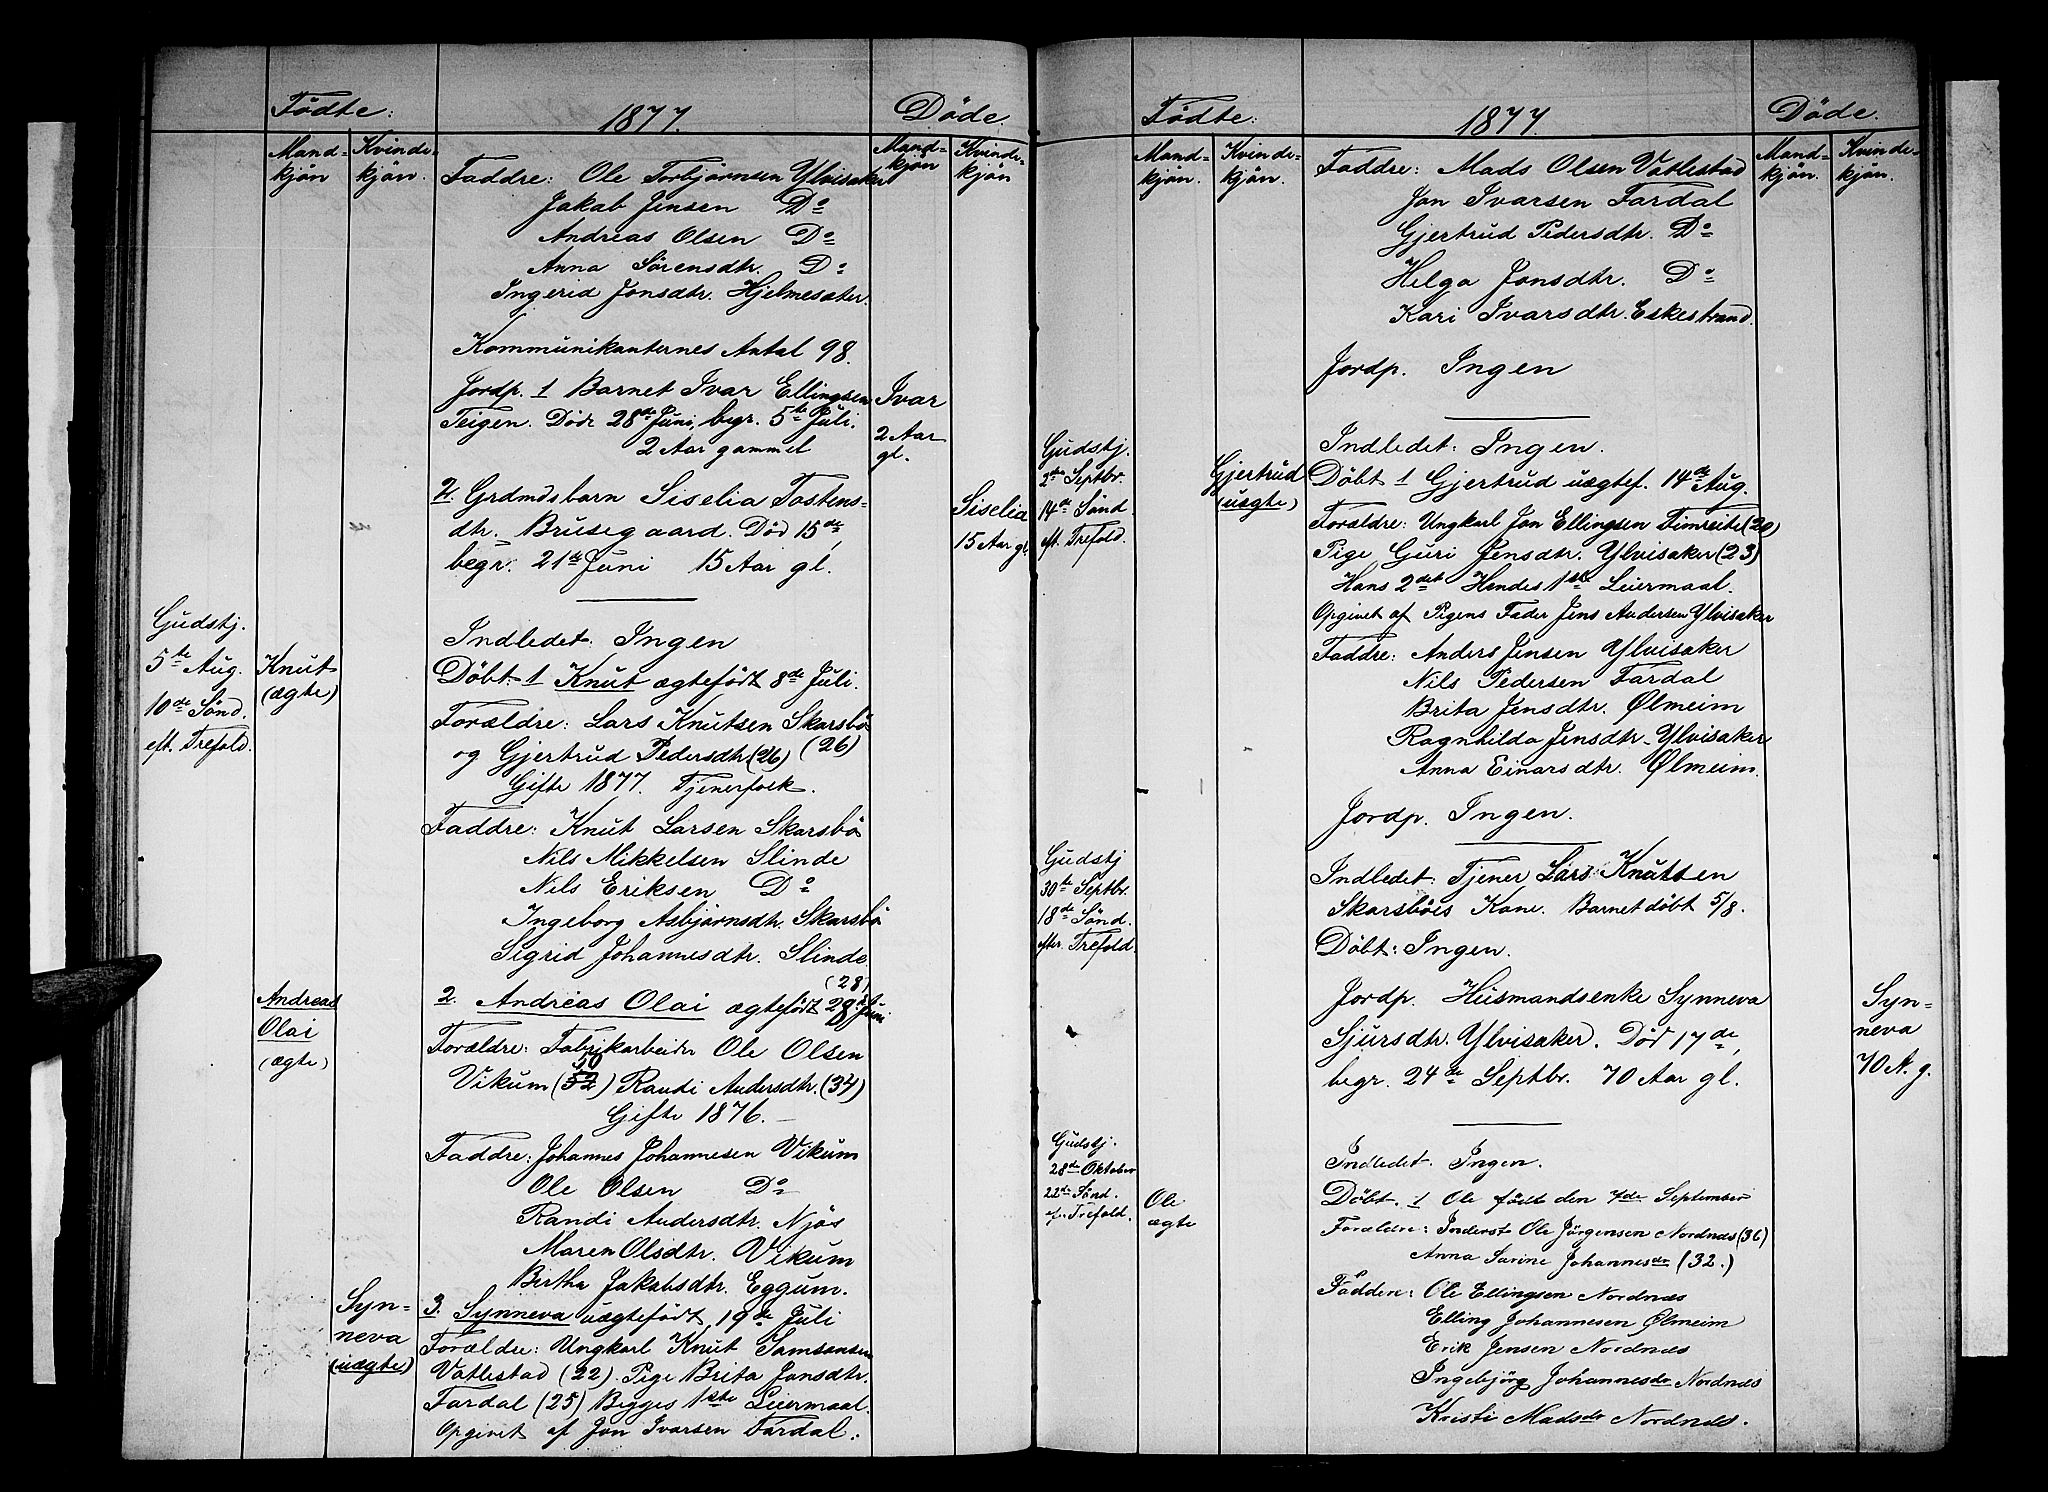 Födte:
1877.
Döde.
Mand-
kjön
Kvinde-
kjön.
Mand-
kjön
Kvinde-
kjön
Faddre: Ole Torbjörnsen Ylvisaker
Jakob Jensen Do
Andreas Olsen Do
Anna Sörensdtr. Do
Ingerid Jonsdtr. Hjelmesæter.
Kommunikanternes Antal 98.
Jordp. 1 Barnet Ivar Ellingsen
Teigen. Död 28de Juni, begr. 5te Juli.
2 Aar gammel
Ivar
2 Aar
gl.
2. Grdmdsbarn Siselia Tostens-
dtr. Brusegaard. Död 15de,
begr. 21de Juni 15 Aar gl.
Siselia
15 Aar gl.
Gudstj.
5te Aug.
10de Sönd.
eft. Trefold.
Indledet: Ingen
Knut
(ægte)
Döbt: 1 Knut ægtefödt 8de Juli.
Forældre: Lars Knutsen Skarsbö
(26)
og Gjertrud Pedersdtr (26)
Gifte 1877. Tjenerfolk.
Faddre: Knut Larsen Skarsbö
Nils Mikkelsen Slinde
Nils Eriksen Do
Ingeborg Asbjörnsdtr. Skarsbö
Sigrid Johannesdtr. Slinde
(28)
Andreas
Olai
(ægte)
2. Andreas Olai ægtefödt 28de Juni
Forældre: Fabrikarbeider Ole Olsen
50
Vikum (52) Randi Andersdtr. (34)
Gifte 1876.
Faddre: Johannes Johannesen Vikum
Ole Olsen Do
Randi Andersdtr. Njös
Maren Olsdtr. Vikum
Birtha Jakobsdtr. Eggum.
Syn-
neva
(uægte)
3. Synneva uægtefödt 19de Juli
Forældre: Ungkarl Knut Samsonsen
Vatlestad (22). Pige Brita Jonsdtr.
Fardal (25) Begges 1ste Leiermaal.
Opgivet af Jon Ivarsen Fardal.
Födte:
1877.
Döde.
Mand-
kjön.
Kvinde-
kjön.
Mand-
kjön.
Kvinde-
kjön.
Faddre: Mads Olsen Vatlestad
Jon Ivarsen Fardal
Gjertrud Pedersdtr. Do
Helga Jonsdtr. Do
Kari Ivarsdtr. Eskestrand.
Jordp. Ingen
Gudstj.
2den Septbr.
14de Sönd
eft. Trefold.
Gjertrud
(uægte)
Indledet: Ingen.
Döbt 1 Gjertrud uægtef. 14de Aug.
Forældre: Ungkarl Jon Ellingsen Fimreite (20)
Pige Guri Jensdtr. Ylvisaker (23)
Hans 2det Hendes 1ste Leiermaal.
Opgivet af Pigens Fader Jens Andersen Ylvisaker
Faddre: Anders Jensen Ylvisaker
Nils Pedersen Fardal
Brita Jensdtr. Ølmeim
Ragnhilda Jensdtr. Ylvisaker
Anna Einarsdtr. Ølmeim.
Jordp. Ingen.
Gudstj
30te Septbr.
18de Sönd.
efter. Trefold.
Indledet: Tjener Lars Knutsen
Skarsböes Kone. Barnet döbt 5/8.
Döbt: Ingen.
Jordp. Husmandsenke Synneva
Sjursdtr. Ylvisaker. Död 17de,
begr. 24de Septbr. 70 Aar gl.
Syn-
neva
70 A. g.
Gudstj.
28de Oktober
22de Sönd.
ef. Trefold.
Ole
ægte
Indledet. Ingen.
Döbt. 1 Ole född den 7de September
Forældre: Inderst Ole Jörgensen Nordnæs (36)
Anna Sarine Johannesdr (32.)
Fadderne: Ole Ellingsen Nordnæs
Elling Johannesen Ølmeim
Erik Jensen Nordnæs
Ingebjörg Johannesdr Nordnæs
Kristi Madsdr Nordnæs.